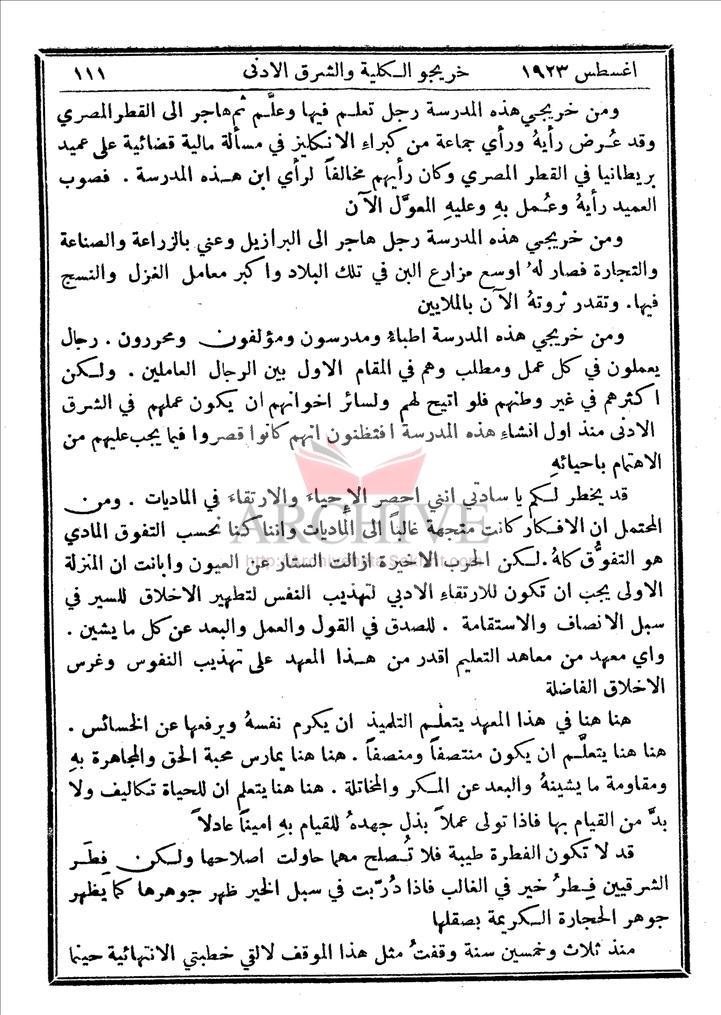 اغسطس ١٩٢٣ خريجو الكلية والشرق الادنى ١١١
ومن خريجي هذه المدرسة رجل تعلم فيها وعلَّم ثم هاجر الى القطر المصري
وقد عُرض رأيهُ ورأي جماعة من كبراء الانكليز في مسألة مالية قضائية على عميد
بريطانيا في القطر المصري وكان رأيهم مخالفاً لرأي ابن هذه المدرسة . فصوب
العميد رأيهُ وعُمل بهِ وعليهِ المعوَّل الآن
ومن خريجي هذه المدرسة رجل هاجر الى البرازيل وعني بالزراعة والصناعة
والتجارة فصار لهُ اوسع مزارع البن في تلك البلاد واكبر معامل الغزل والنسج
فيها. وتقدر ثروتهُ الآن بالملايين
ومن خريجي هذه المدرسة اطباءُ ومدرسون ومؤلفون ومحررون . رجال
يعملون في كل عمل ومطلب وهم في المقام الاول بين الرجال العاملين . ولكن
اكثرهم في غير وطنهم فلو اتيح لهم ولسائر اخوانهم ان يكون عملهم في الشرق
الادنى منذ اول انشاءِ هذه المدرسة افتظنون انهم كانوا قصروا فيما يجب عليهم من
الاهتمام باحيائهِ
قد يخطر لكم يا سادتي انني احصر الإحياء والارتقاء في الماديات . ومن
المحتمل ان الافكار كانت متجهة غالباً الى الماديات واننا كنا نحسب التفوق المادي
هو التفوُّق كلهُ. لكن الحرب الاخيرة ازالت الستار عن العيون وابانت ان المنزلة
الاولى يجب ان تكون للارتقاءِ الادبي لتهذيب النفس لتطهير الاخلاق للسير في
سبل الانصاف والاستقامة . للصدق في القول والعمل والبعد عن كل ما يشين .
واي معهد من معاهد التعليم اقدر من هذا المعهد على تهذيب النفوس وغرس
الاخلاق الفاضلة
هنا هنا في هذا المعهد يتعلَّم التلميذ ان يكرم نفسهُ ويرفعها عن الخسائس .
هنا هنا يتعلَّم ان يكون منتصفاً ومنصفاً . هنا هنا يمارس محبة الحق والمجاهرة بهِ
ومقاومة ما يشينهُ والبعد عن المكر والمخاتلة . هنا هنا يتعلم ان للحياة تكاليف ولا
بدَّ من القيام بها فاذا تولى عملاً بذل جهدهُ للقيام بهِ اميناً عادلاً
قد لا تكون الفطرة طيبة فلا تُصلح مهما حاولت اصلاحها ولكن فِطَر
الشرقيين فِطرُ خير في الغالب فاذا دُرّبت في سبل الخير ظهر جوهرها كما يظهر
جوهر الحجارة الكريمة بصقلها
منذ ثلاث وخمسين سنة وقفتُ مثل هذا الموقف لالتي خطبتي الانتهائية حينما
ARCHIVE